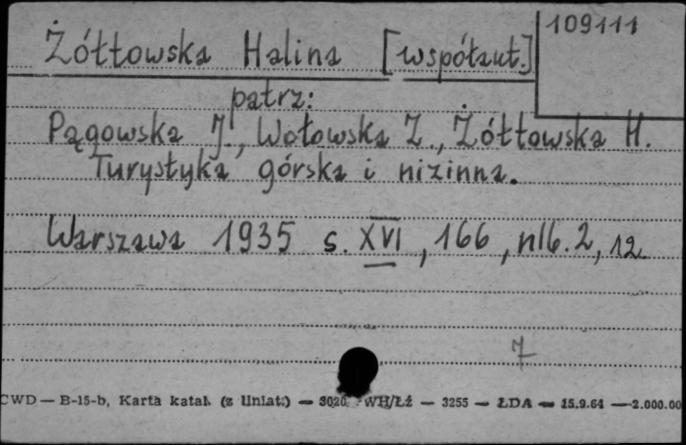 109111
Żółtowska Halina [współaut.]
patrz:
Pągowska J., Wołowska Z., Żółtowska H.
Turystyka górska i nizinna.
Warszawa 1935 s. XVI, 166, nlb. 2, 12
7
CWD — B-15-b, Karta katal. (z Uniat.) — 3020 WH/Łź — 3255 — ŁDA — 15.9.64 — 2.000.00